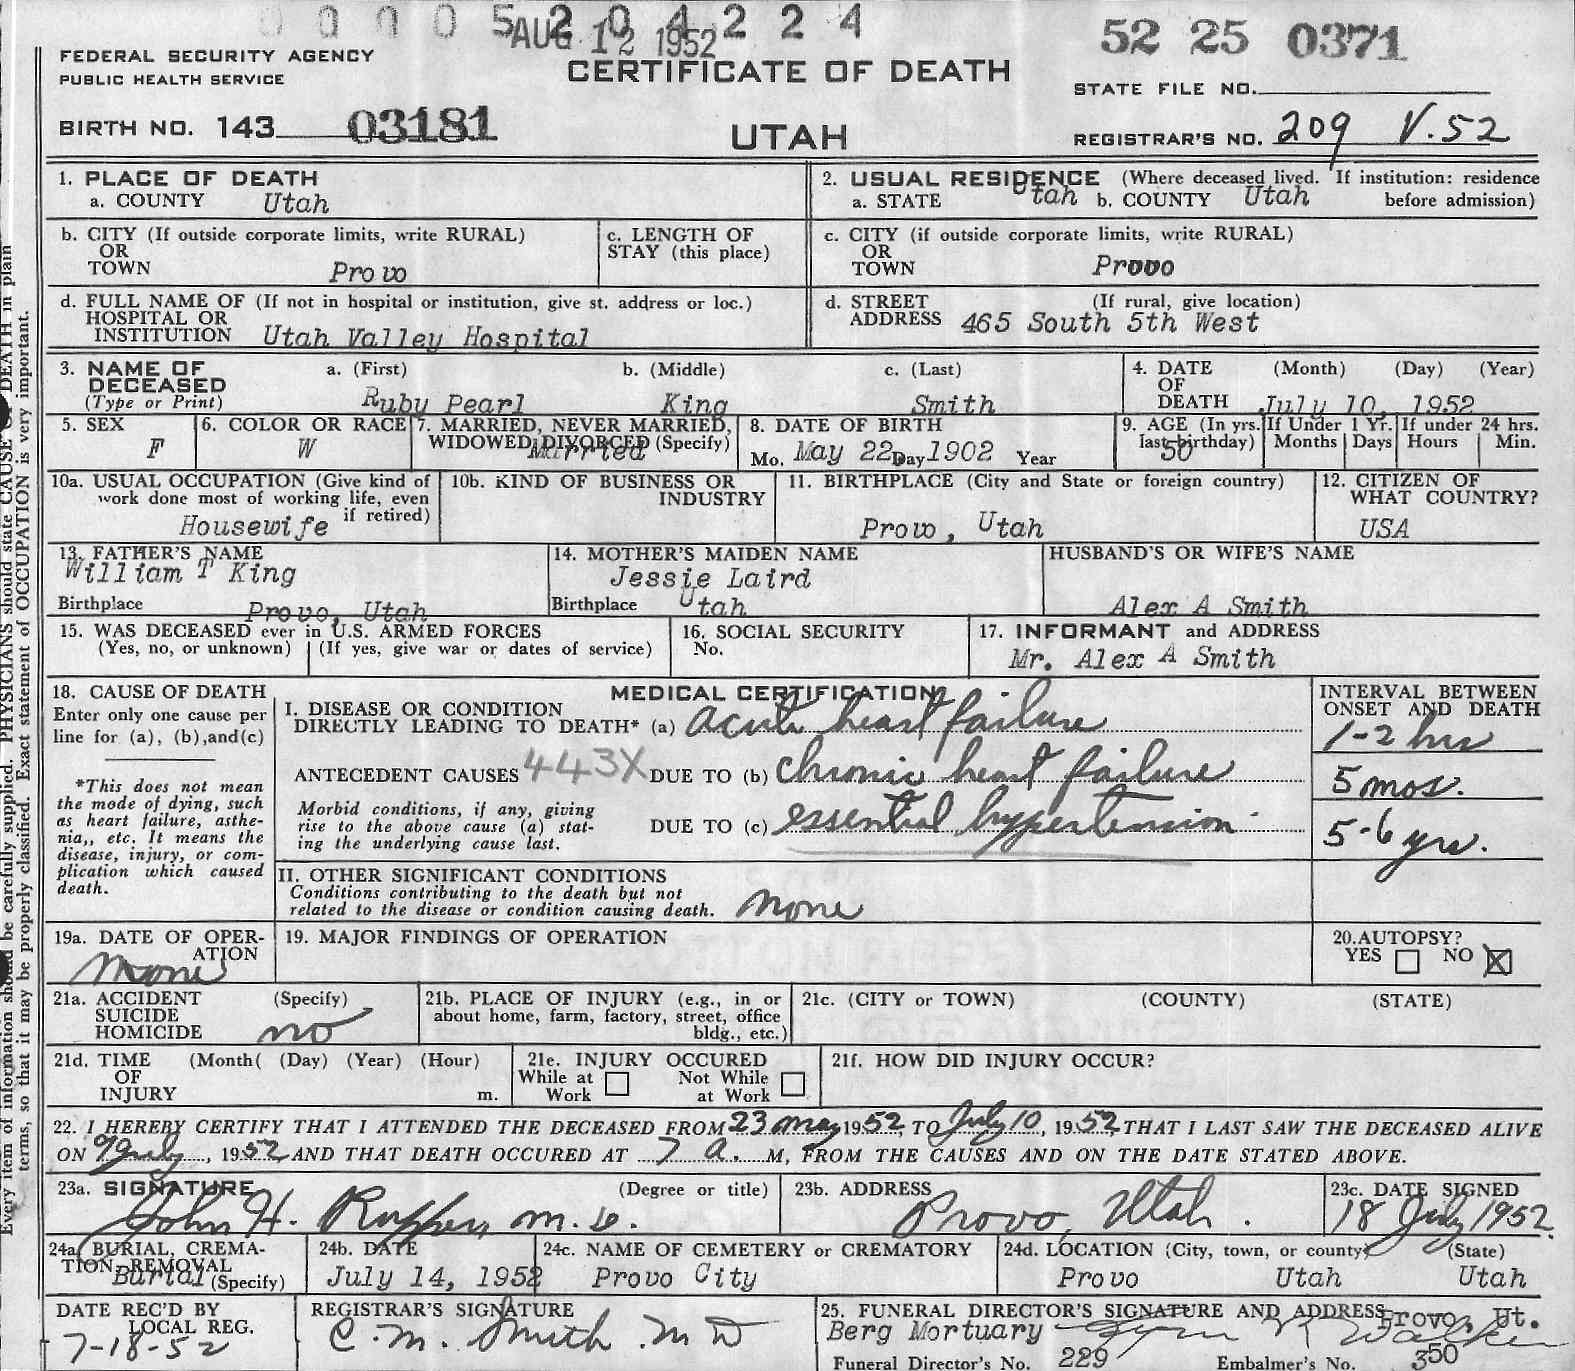 0 0 0 0 5 2 0 4 2 2 4
AUG 12 1952
52 25 0371
FEDERAL SECURITY AGENCY
PUBLIC HEALTH SERVICE
CERTIFICATE OF DEATH
STATE FILE NO.
BIRTH NO. 143 03181
UTAH
REGISTRAR'S NO. 209 V.52
1. PLACE OF DEATH
a. COUNTY Utah
2. USUAL RESIDENCE (Where deceased lived. If institution: residence before admission)
a. STATE Utah b. COUNTY Utah
b. CITY (If outside corporate limits, write RURAL)
OR
TOWN Provo
c. LENGTH OF
STAY (this place)
c. CITY (if outside corporate limits, write RURAL)
OR
TOWN Provo
d. FULL NAME OF (If not in hospital or institution, give st. address or loc.)
HOSPITAL OR
INSTITUTION Utah Valley Hospital
d. STREET (If rural, give location)
ADDRESS 465 South 5th West
3. NAME OF
DECEASED
(Type or Print)
a. (First) b. (Middle) c. (Last)
Ruby Pearl King Smith
4. DATE (Month) (Day) (Year)
OF
DEATH July 10, 1952
5. SEX
F
6. COLOR OR RACE
W
7. MARRIED, NEVER MARRIED,
WIDOWED, DIVORCED (Specify)
Married
8. DATE OF BIRTH
Mo. May 22 Day 1902 Year
9. AGE (In yrs. last birthday)
50
If Under 1 Yr.
Months Days
If under 24 hrs.
Hours Min.
10a. USUAL OCCUPATION (Give kind of
work done most of working life, even
if retired)
Housewife
10b. KIND OF BUSINESS OR
INDUSTRY
11. BIRTHPLACE (City and State or foreign country)
Provo, Utah
12. CITIZEN OF
WHAT COUNTRY?
USA
13. FATHER'S NAME
William T King
Birthplace Provo, Utah
14. MOTHER'S MAIDEN NAME
Jessie Laird
Birthplace Utah
HUSBAND'S OR WIFE'S NAME
Alex A Smith
15. WAS DECEASED ever in U.S. ARMED FORCES
(Yes, no, or unknown) (If yes, give war or dates of service)
16. SOCIAL SECURITY
No.
17. INFORMANT and ADDRESS
Mr. Alex A Smith
18. CAUSE OF DEATH
Enter only one cause per
line for (a), (b),and(c)
*This does not mean
the mode of dying, such
as heart failure, asthe-
nia,, etc. It means the
disease, injury, or com-
plication which caused
death.
MEDICAL CERTIFICATION
I. DISEASE OR CONDITION
DIRECTLY LEADING TO DEATH* (a) acute heart failure
ANTECEDENT CAUSES 443X DUE TO (b) chronic heart failure
Morbid conditions, if any, giving
rise to the above cause (a) stat-
ing the underlying cause last.
DUE TO (c) essential hypertension
INTERVAL BETWEEN
ONSET AND DEATH
1-2 hrs
5 mos.
5-6 yrs.
II. OTHER SIGNIFICANT CONDITIONS
Conditions contributing to the death but not
related to the disease or condition causing death. none
19a. DATE OF OPER-
ATION
none
19. MAJOR FINDINGS OF OPERATION
20.AUTOPSY?
YES NO X
21a. ACCIDENT (Specify)
SUICIDE
HOMICIDE no
21b. PLACE OF INJURY (e.g., in or
about home, farm, factory, street, office
bldg., etc.)
21c. (CITY or TOWN) (COUNTY) (STATE)
21d. TIME (Month( (Day) (Year) (Hour)
OF
INJURY m.
21e. INJURY OCCURED
While at Work Not While at Work
21f. HOW DID INJURY OCCUR?
22. I HEREBY CERTIFY THAT I ATTENDED THE DECEASED FROM 23 may 1952, TO July 10, 1952, THAT I LAST SAW THE DECEASED ALIVE
ON 9 July, 1952 AND THAT DEATH OCCURED AT 7 a. M, FROM THE CAUSES AND ON THE DATE STATED ABOVE.
23a. SIGNATURE (Degree or title)
John H. M.D.
23b. ADDRESS
Provo, Utah.
23c. DATE SIGNED
18 July 1952.
24a. BURIAL, CREMA-
TION, REMOVAL
Burial (Specify)
24b. DATE
July 14, 1952
24c. NAME OF CEMETERY or CREMATORY
Provo City
24d. LOCATION (City, town, or county) (State)
Provo Utah Utah
DATE REC'D BY
LOCAL REG.
7-18-52
REGISTRAR'S SIGNATURE
C. M. Smith M D
25. FUNERAL DIRECTOR'S SIGNATURE AND ADDRESS Provo, Ut.
Berg Mortuary
Funeral Director's No. 229 Embalmer's No. 350
Every item of information should be carefully supplied. PHYSICIANS should state CAUSE OF DEATH in plain
terms, so that it may be properly classified. Exact statement of OCCUPATION is very important.